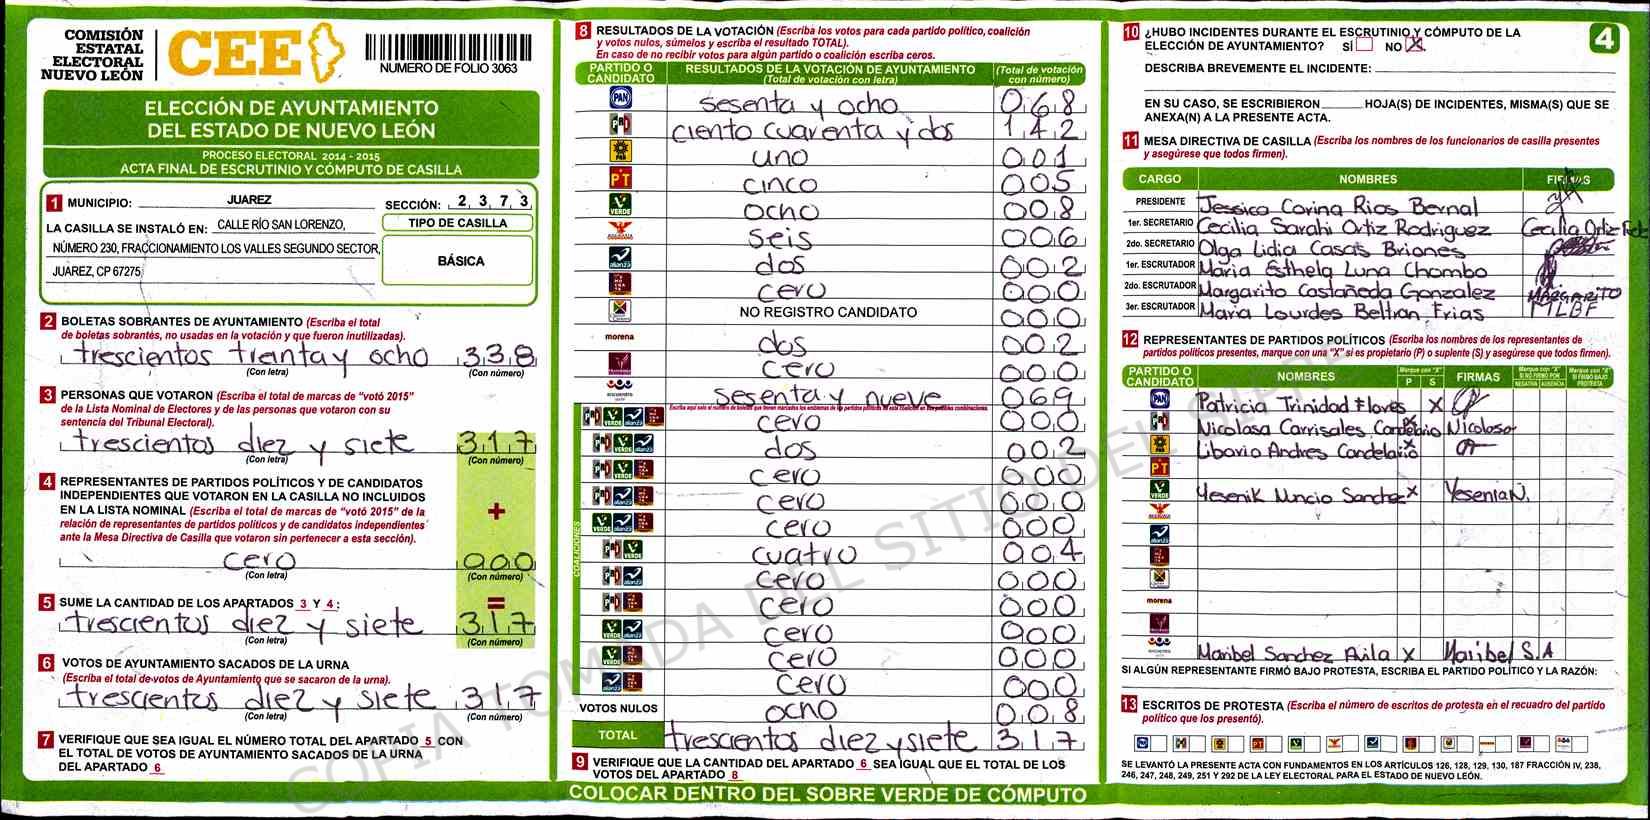 COMISIÓN
ESTATAL
ELECTORAL
NUEVO LEÓN
CEE
NUMERO DE FOLIO 3063
ELECCIÓN DE AYUNTAMIENTO
DEL ESTADO DE NUEVO LEÓN
PROCESO ELECTORAL 2014 - 2015
ACTA FINAL DE ESCRUTINIO Y CÓMPUTO DE CASILLA
1 MUNICIPIO: JUAREZ SECCIÓN: 2 3 7 3
LA CASILLA SE INSTALÓ EN: CALLE RÍO SAN LORENZO,
NÚMERO 230, FRACCIONAMIENTO LOS VALLES SEGUNDO SECTOR,
JUAREZ, CP 67275
TIPO DE CASILLA
BÁSICA
2 BOLETAS SOBRANTES DE AYUNTAMIENTO (Escriba el total
de boletas sobrantes, no usadas en la votación y que fueron inutilizadas).
trescientos treinta y ocho 338
(Con letra) (Con número)
3 PERSONAS QUE VOTARON (Escriba el total de marcas de "votó 2015"
de la Lista Nominal de Electores y de las personas que votaron con su
sentencia del Tribunal Electoral).
trescientos diez y siete 317
(Con letra) (Con número)
4 REPRESENTANTES DE PARTIDOS POLÍTICOS Y DE CANDIDATOS
INDEPENDIENTES QUE VOTARON EN LA CASILLA NO INCLUIDOS
EN LA LISTA NOMINAL (Escriba el total de marcas de "votó 2015" de la
relación de representantes de partidos políticos y de candidatos independientes
ante la Mesa Directiva de Casilla que votaron sin pertenecer a esta sección).
+
cero 000
(Con letra) (Con número)
=
5 SUME LA CANTIDAD DE LOS APARTADOS 3 Y 4 :
trescientos diez y siete 317
(Con letra) (Con número)
6 VOTOS DE AYUNTAMIENTO SACADOS DE LA URNA
(Escriba el total de votos de Ayuntamiento que se sacaron de la urna).
trescientos diez y siete 317
(Con letra) (Con número)
7 VERIFIQUE QUE SEA IGUAL EL NÚMERO TOTAL DEL APARTADO 5 CON
EL TOTAL DE VOTOS DE AYUNTAMIENTO SACADOS DE LA URNA
DEL APARTADO 6
8 RESULTADOS DE LA VOTACIÓN (Escriba los votos para cada partido político, coalición
y votos nulos, súmelos y escriba el resultado TOTAL).
En caso de no recibir votos para algún partido o coalición escriba ceros.
PARTIDO O CANDIDATO
RESULTADOS DE LA VOTACIÓN DE AYUNTAMIENTO
(Total de votación con letra)
(Total de votación con número)
PAN sesenta y ocho 068
PRI ciento cuarenta y dos 142
PRD uno 001
PT cinco 005
VERDE ocho 008
seis 006
alianza dos 002
cero 000
NO REGISTRO CANDIDATO 000
morena dos 002
cero 000
encuentro sesenta y nueve 069
COALICIONES
cero 000
dos 002
cero 000
cero 000
cero 000
cuatro 004
cero 000
cero 000
cero 000
cero 000
cero 000
VOTOS NULOS ocho 008
TOTAL trescientos diez y siete 317
9 VERIFIQUE QUE LA CANTIDAD DEL APARTADO 6 SEA IGUAL QUE EL TOTAL DE LOS
VOTOS DEL APARTADO 8
COLOCAR DENTRO DEL SOBRE VERDE DE CÓMPUTO
4
10 ¿HUBO INCIDENTES DURANTE EL ESCRUTINIO Y CÓMPUTO DE LA
ELECCIÓN DE AYUNTAMIENTO? SÍ NO X
DESCRIBA BREVEMENTE EL INCIDENTE:
EN SU CASO, SE ESCRIBIERON HOJA(S) DE INCIDENTES, MISMA(S) QUE SE
ANEXA(N) A LA PRESENTE ACTA.
11 MESA DIRECTIVA DE CASILLA (Escriba los nombres de los funcionarios de casilla presentes
y asegúrese que todos firmen).
CARGO NOMBRES FIRMAS
PRESIDENTE Jessica Corina Rios Bernal
1er. SECRETARIO Cecilia Sarahi Ortiz Rodriguez Cecilia Ortiz
2do. SECRETARIO Olga Lidia Casas Briones
1er. ESCRUTADOR Maria Esthela Luna Chombo
2do. ESCRUTADOR Margarito Castañeda Gonzalez MARGARITO
3er. ESCRUTADOR Maria Lourdes Beltran Frias MLBF
12 REPRESENTANTES DE PARTIDOS POLÍTICOS (Escriba los nombres de los representantes de
partidos políticos presentes, marque con una "X" si es propietario (P) o suplente (S) y asegúrese que todos firmen).
PARTIDO O CANDIDATO NOMBRES Marque con "X" P S FIRMAS Marque con "X" SI NO FIRMÓ POR NEGATIVA AUSENCIA Marque con "X" SI FIRMÓ BAJO PROTESTA
PAN Patricia Trinidad Flores X
PRI Nicolasa Carrisales Candelario X Nicolosa
PRD Libovio Andres Candelario X
PT
VERDE Yesenik Nuncio Sanchez X Yesenia N.
morena
encuentro Maribel Sanchez Avila X Maribel S.A
SI ALGÚN REPRESENTANTE FIRMÓ BAJO PROTESTA, ESCRIBA EL PARTIDO POLÍTICO Y LA RAZÓN:
13 ESCRITOS DE PROTESTA (Escriba el número de escritos de protesta en el recuadro del partido
político que los presentó).
SE LEVANTÓ LA PRESENTE ACTA CON FUNDAMENTOS EN LOS ARTÍCULOS 126, 128, 129, 130, 187 FRACCIÓN IV, 238,
246, 247, 248, 249, 251 Y 292 DE LA LEY ELECTORAL PARA EL ESTADO DE NUEVO LEÓN.
COPIA TOMADA DEL SITIO DEL SIPRE